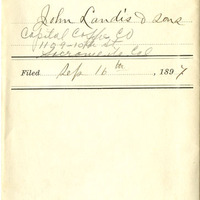 John Landis & Sons
Capital Coffee Co
1129-10th St
Sacramento Cal
Filed Sep 16th, 1897